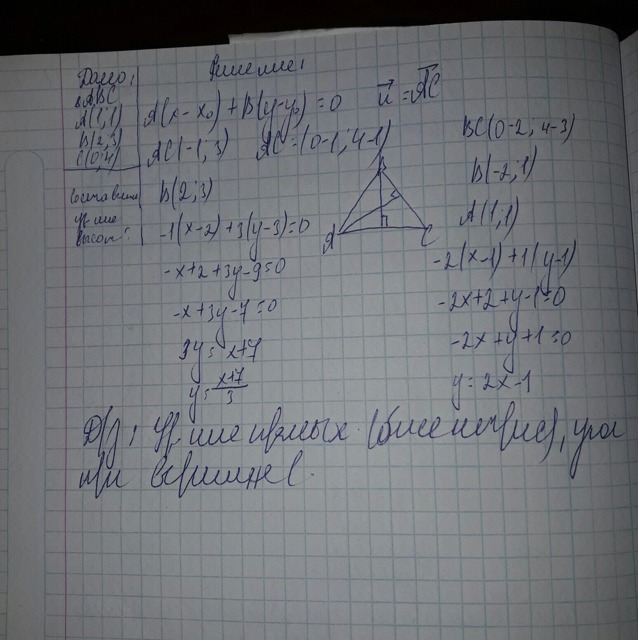 Дано:
Решение:
ΔABC
A(1;1)
B(2;3)
C(0;4)
Составить
ур-ние
высот:
A(x-x₀)+B(y-y₀)=0
n⃗=AC⃗
AC(-1;3) AC=(0-1;4-1)
B(2;3)
-1(x-2)+3(y-3)=0
-x+2+3y-9=0
-x+3y-7=0
3y=x+7
y=x+7/3
B
A
C
BC(0-2;4-3)
B(-2;1)
A(1;1)
-2(x-1)+1(y-1)
-2x+2+y-1=0
-2x+y+1=0
y=2x-1
Д/з: Ур-ние прямых (биссектрис), угол
при вершине C.